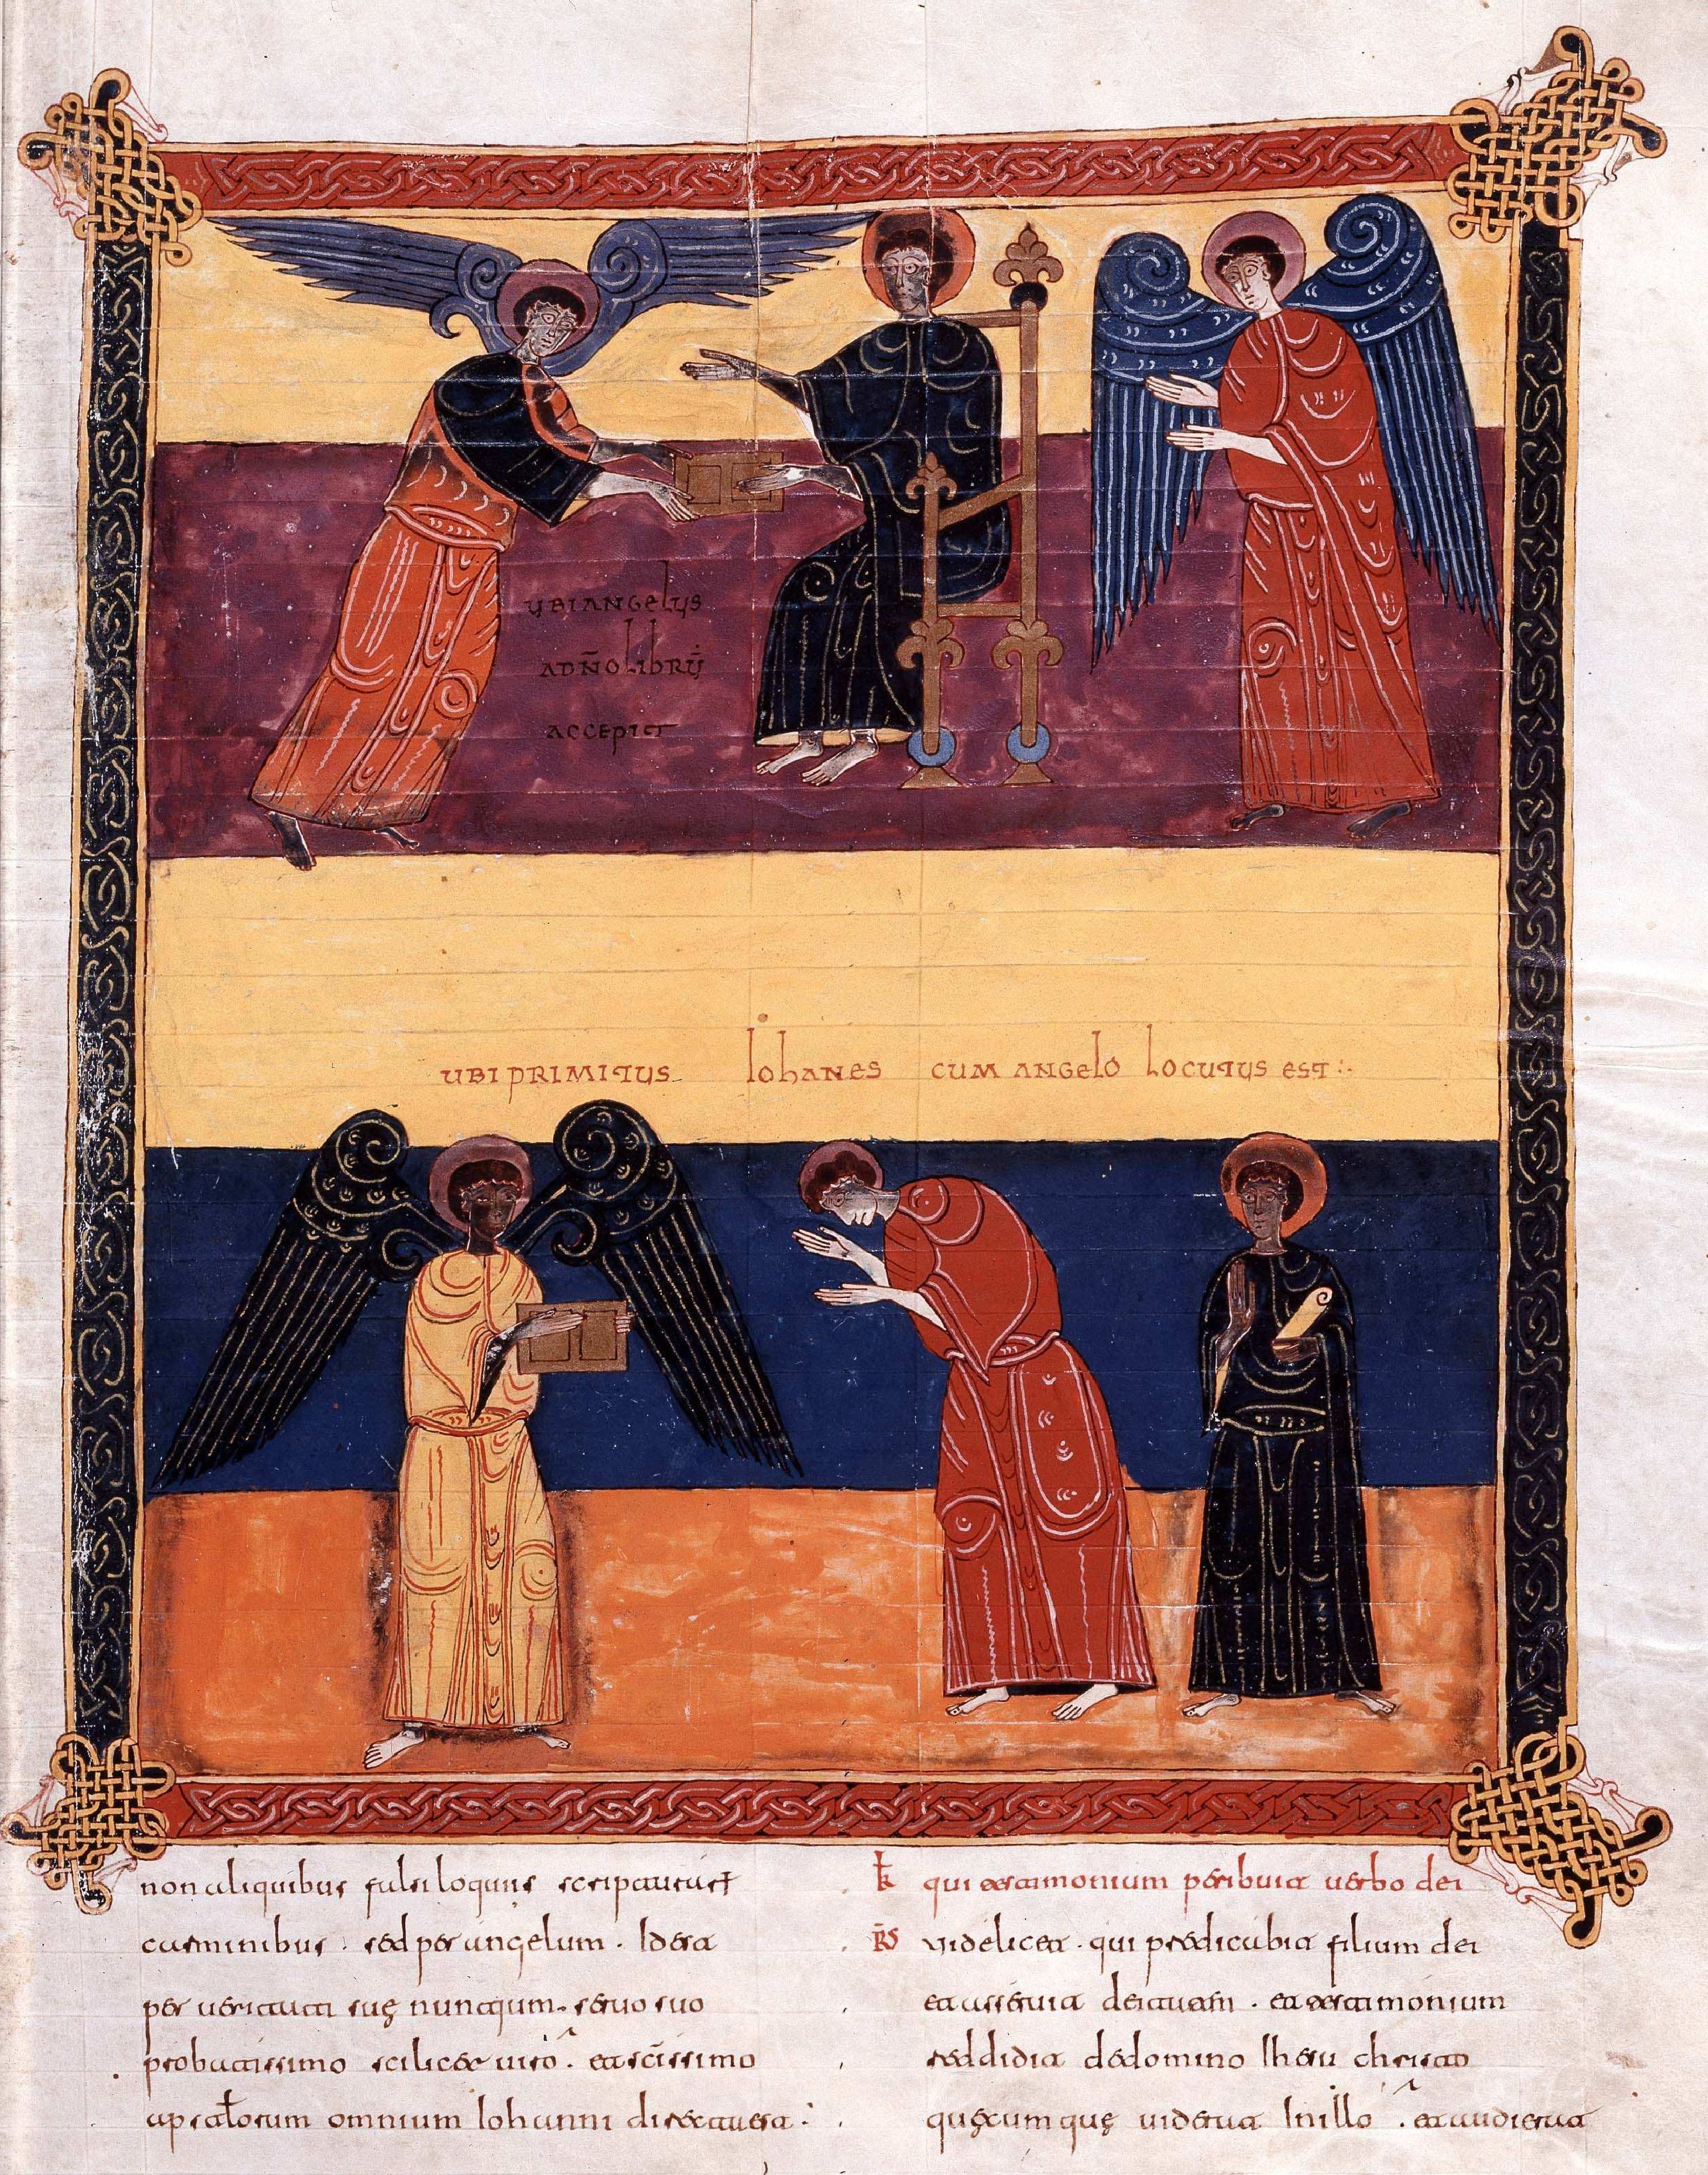 UBI ANGELUS
AD DÑO LIBRŪ
ACCEPIT
UBI PRIMITUS IOHANES CUM ANGELO LOCUTUS EST
non aliquibus falsiloquus
carminibus . sed per angelum . Id est
per ueritatem suę nuntium . seruo suo
probatissimo scilicet uiro . et sc̄issimo
apostolorum omnium Iohanni direxerat
qui testimonium peribuit uerbo dei
R̄S uidelicet . qui predicabit filium dei
et testimonium
reddidit de domino Ihesu christo
quęcumque uiderat In illo . et audierat